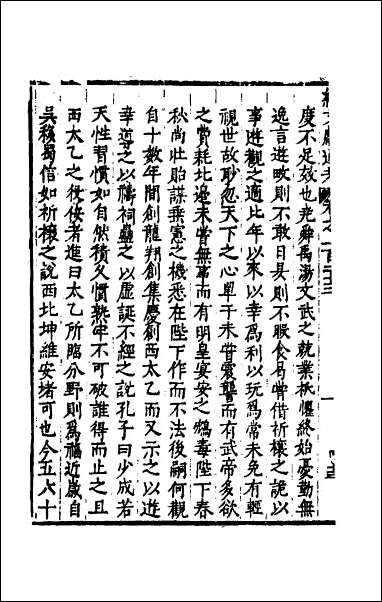 度不足效也堯舜禹湯文武之就業祇懼終始憂勤無
逸言遊畋則不敢日昃則不暇食曷嘗借祈禳之詭以
事遊觀之適比年以來以幸為利以玩為常未免有輕
視世故眇忽天下之心單于未嘗震讋而有武帝多欲
之費耗北邊未嘗無事而有明皇宴安之鴆毒陛下春
秋尚壯貽謀垂憲之機悉在陛下作而不法後嗣何觀
自十數年間創龍翔創集慶創西太乙而又示之以遊
幸導之以禱祠蠱之以虛誕不經之說孔子曰少成若
天性習慣如自然積久慣熟牢不可破誰得而止之且
西太乙之役佞者進曰太乙所臨分野則為福近歲自
吳移蜀信如祈禳之說西北坤維安堵可也今五六十